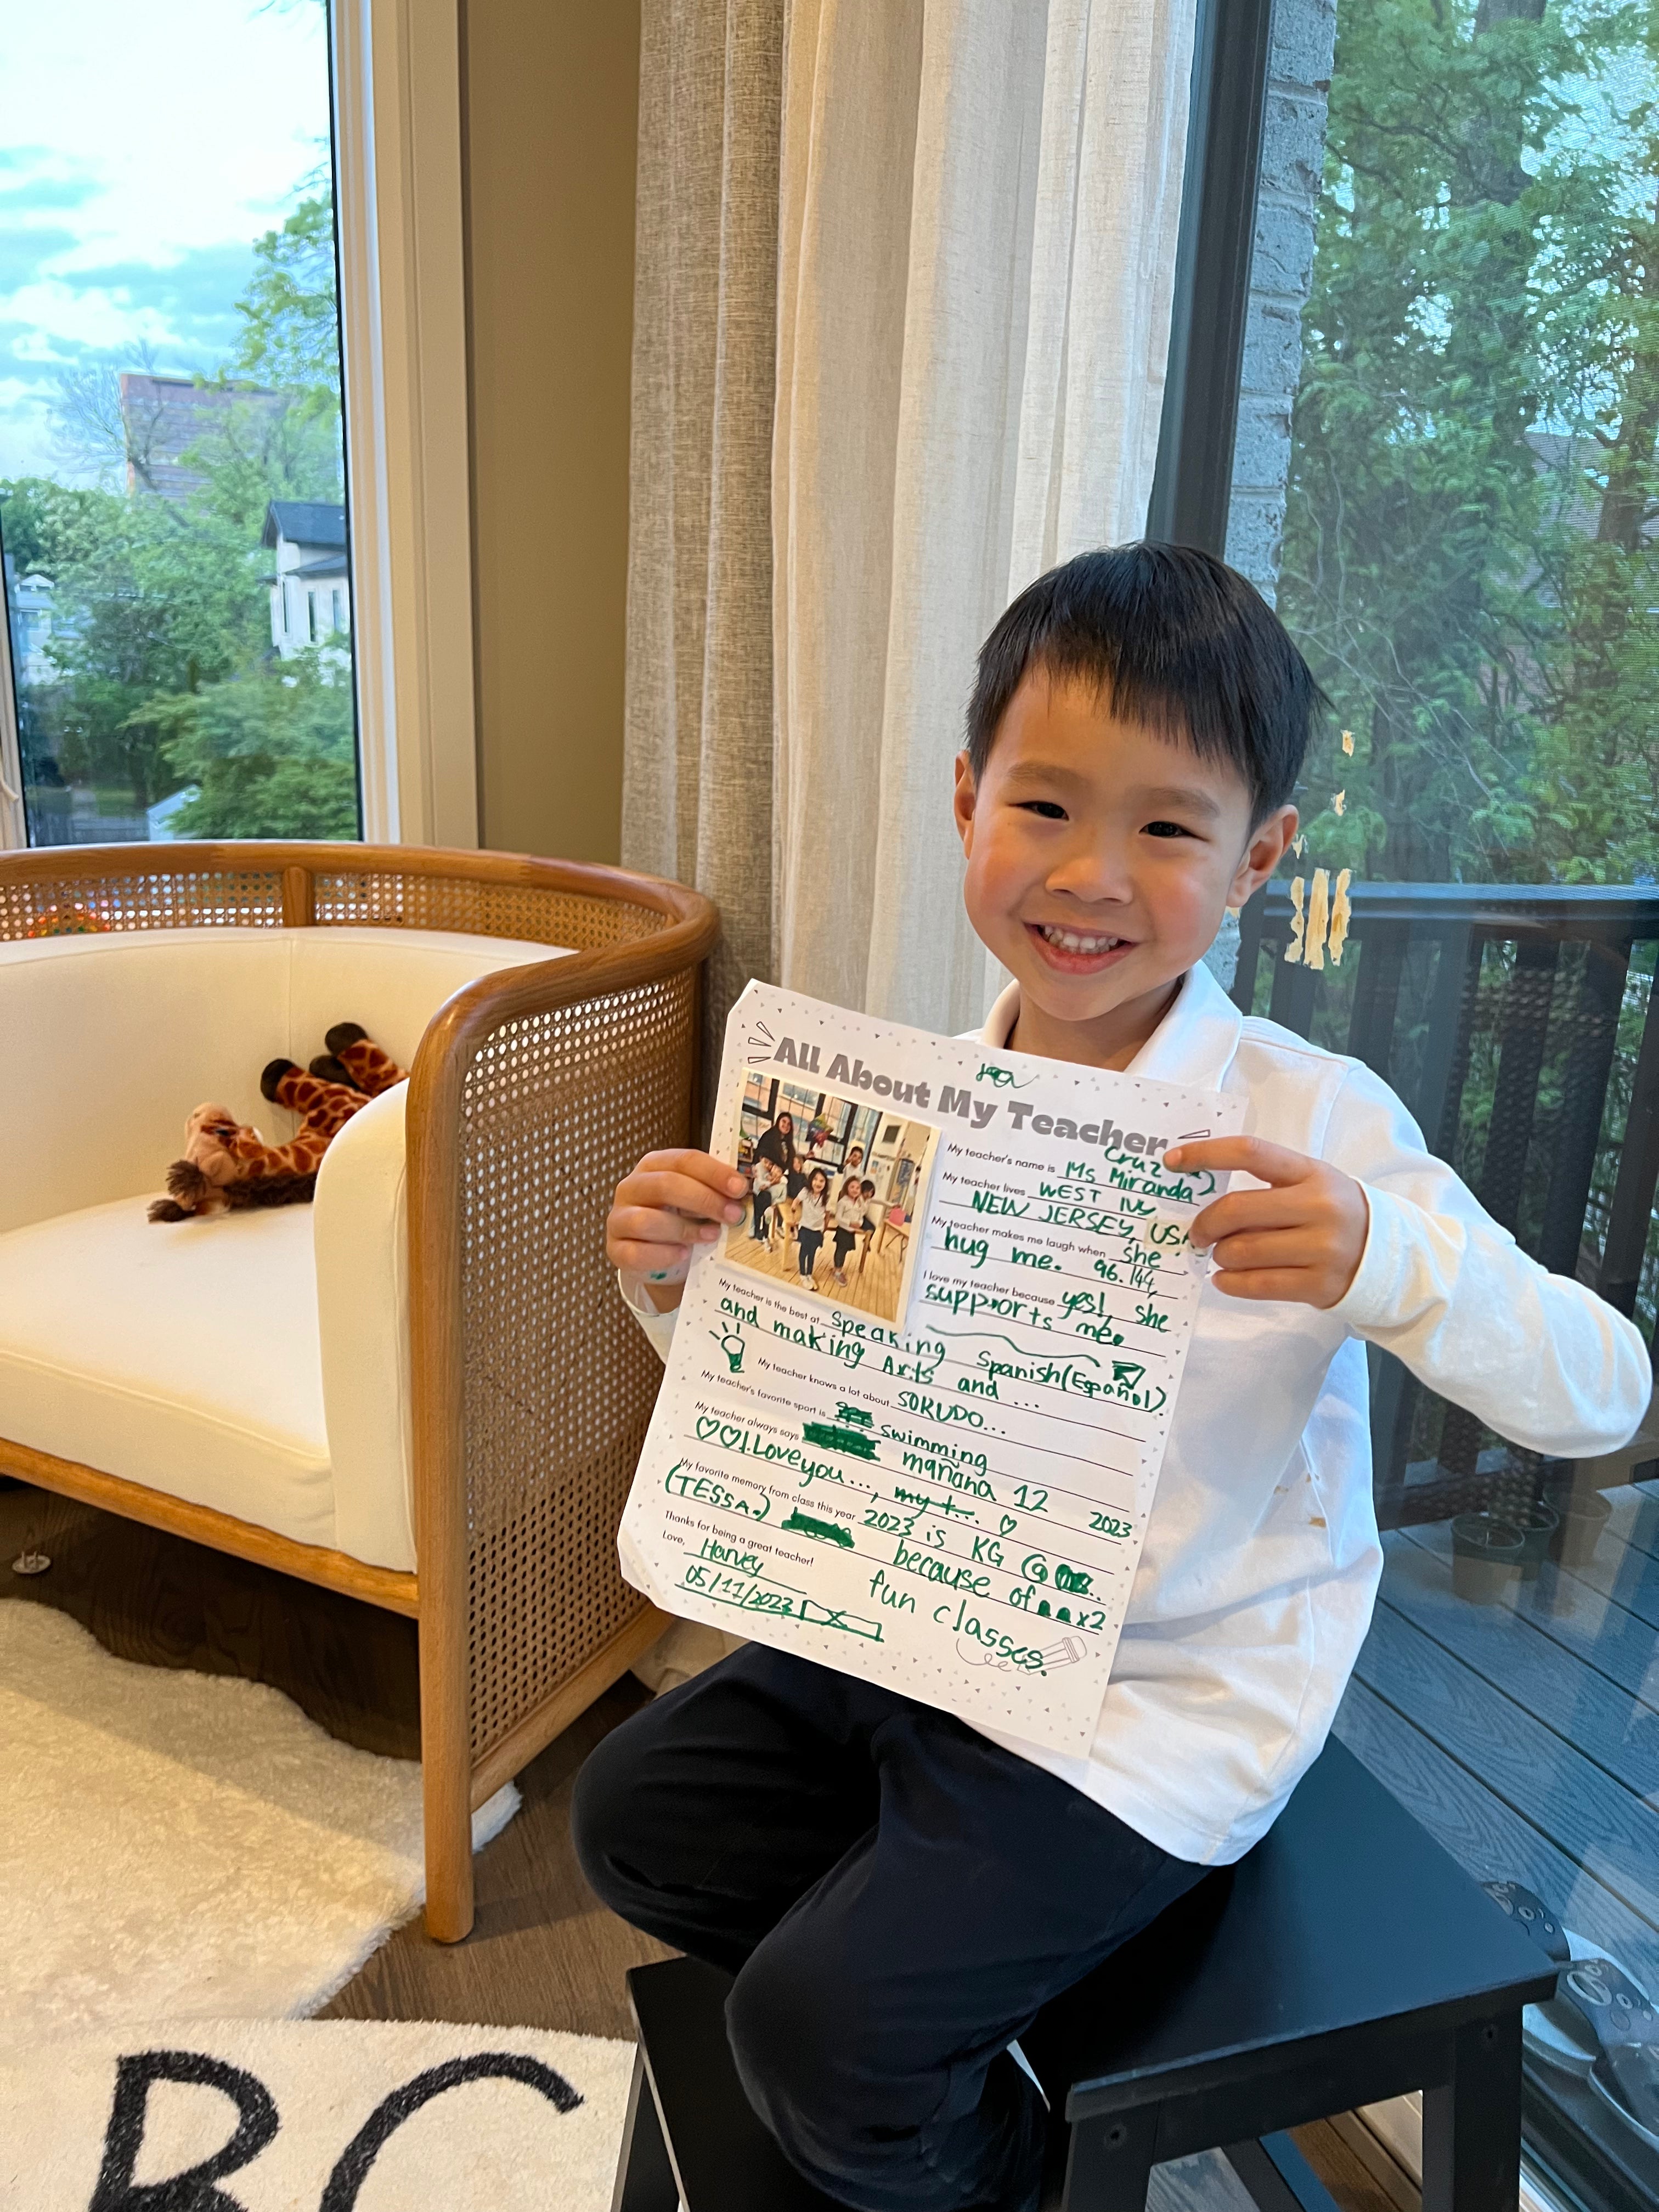 All About My Teacher
My teacher's name is Ms Miranda
Cruz
My teacher lives WEST
NEW JERSEY, USA
My teacher makes me laugh when she
hug me. 96.144,
I love my teacher because yes!, she
supports me.
My teacher is the best at Speaking Spanish(Español).
and making Arts and ...
My teacher knows a lot about SORUDO...
My teacher's favorite sport is swimming
My teacher always says mañana 12 2023
♡♡I.Love you..., my t... ♡
My favorite memory from class this year 2023 is KG @
(TESSA.) because of x2
fun classes.
Thanks for being a great teacher!
Love, Harvey
05/11/2023
BC